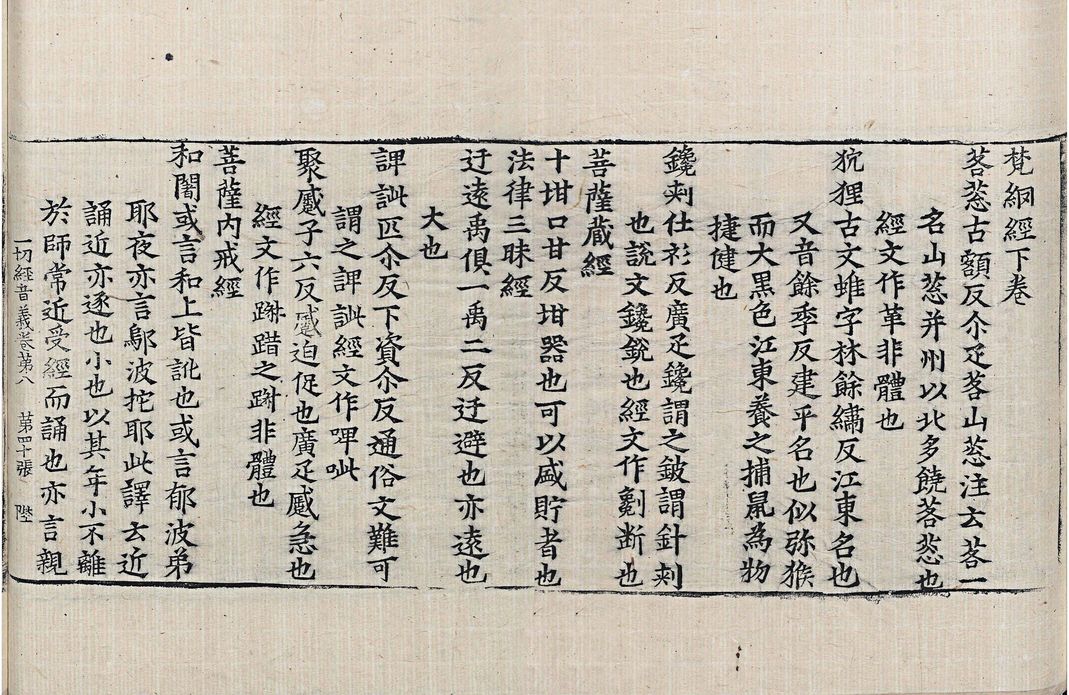 梵網經下卷
茖葱古額反尒疋茖山葱注云茖一
名山葱并州以北多饒茖葱也
經文作革非體也
狖狸古文蜼字林餘繡反江東名也
又音餘季反建平名也似弥猴
而大黑色江東養之捕鼠為物
捷健也
鑱刾仕衫反廣疋鑱謂之鈹謂針刾
也說文鑱銳也經文作劖断也
菩薩藏經
十坩口甘反坩器也可以盛貯者也
法律三昧經
迂遠禹俱一禹二反迂避也亦遠也
大也
諀訿匹尒反下資尒反通俗文難可
謂之諀訿經文作呷呲
聚蹙子六反蹙迫促也廣疋蹙急也
經文作踧踖之踧非體也
菩薩内戒經
和闍或言和上皆訛也或言郁波弟
耶夜亦言鄔波拕耶此譯云近
誦近亦逐也小也以其年小不離
於師常近受經而誦也亦言親
一切經音義卷第八 第四十張 陛